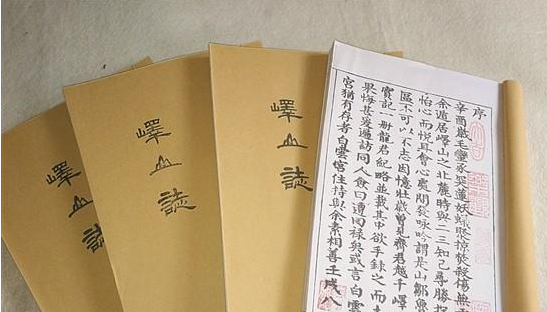 嶧山誌
嶧山誌
嶧山誌
序
辛酉 毛蠻承 蓮妖蟻聚掠焚殺傷無
余遁居嶧山之北麓時與二三知己尋勝探
怡心而悦耳會心處間發咏吟謂是山鄒魯
區不可以不志因憶壯歲曾見齋君越千嶧
實記一冊龍君紀略並載其中欲手錄之而
果悔甚爰遍訪同人僉曰遭回祿與或言白雲
宮猶有存者白雲宮住持與余素相善壬戌八